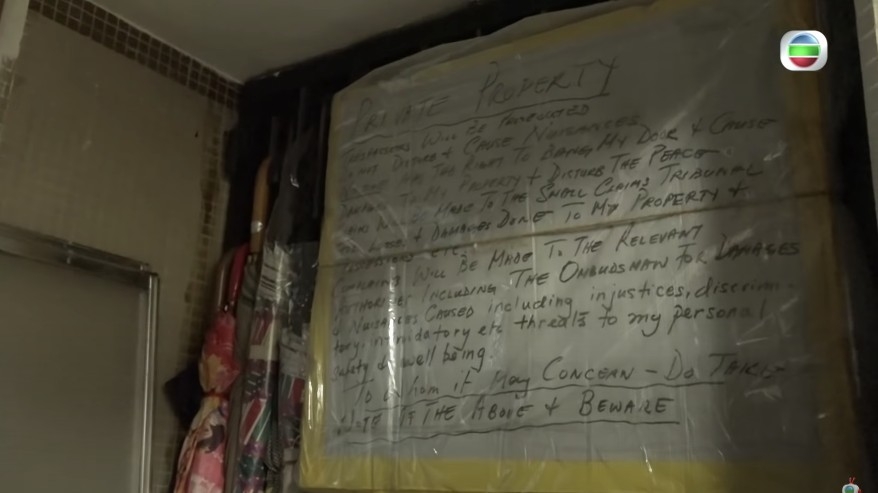 PRIVATE PROPERTY
TRESPASSERS WILL BE PROSECUTED
NOT DISTURB & CAUSE NUISANCES
HAS THE RIGHT TO BANG MY DOOR & CAUSE
TO MY PROPERTY & DISTURB THE PEACE
MADE TO THE SMALL CLAIMS TRIBUNAL
& DAMAGES DONE TO MY PROPERTY &
ETC.
COMPLAINTS WILL BE MADE TO THE RELEVANT
AUTHORITIES INCLUDING THE OMBUDSMAN FOR DAMAGES
& NUISANCES CAUSED including injustices, discrimina-
tory, intimidatory etc threats to my personal
safety & well being.
To whom it May CONCERN - DO TAKE
NOTE OF THE ABOVE & BEWARE